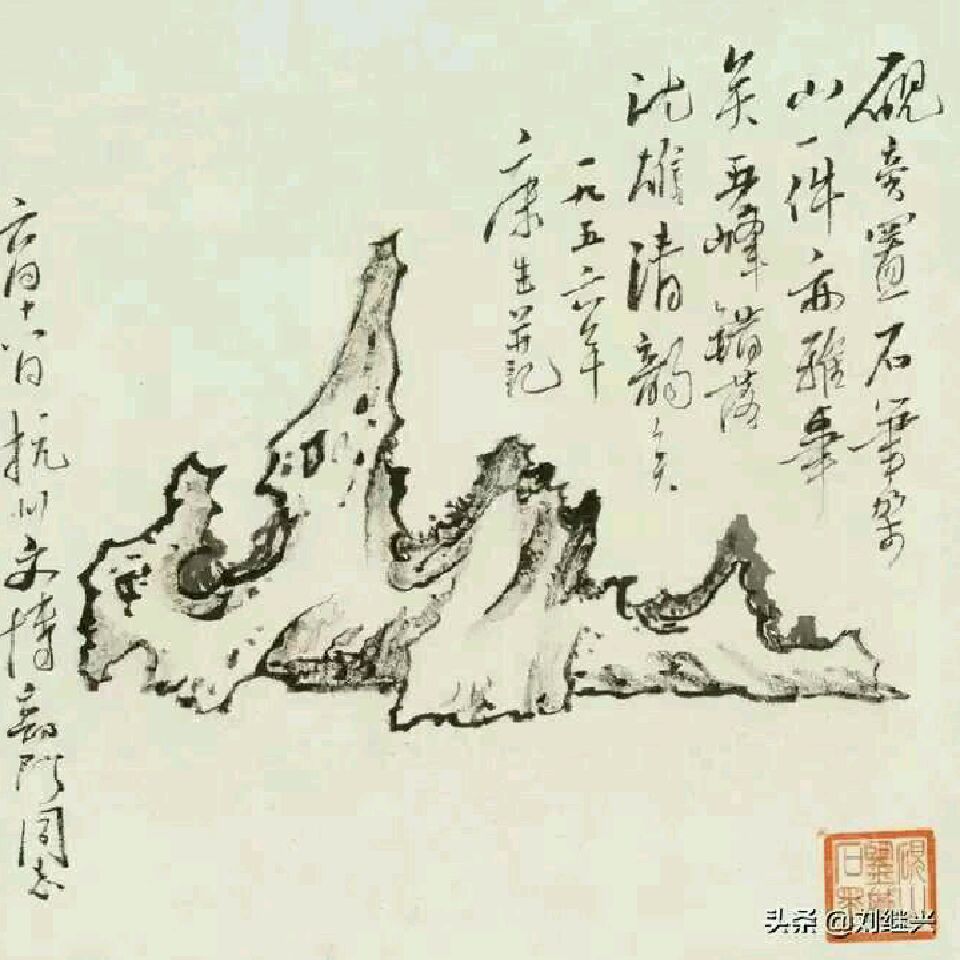 砚旁置石笔架
山一件亦雅事
矣五峰错落
沈雄清韵之矣
一九五六年
六月十八日杭州文博韵阶同志
康生并记
头条 @刘继兴